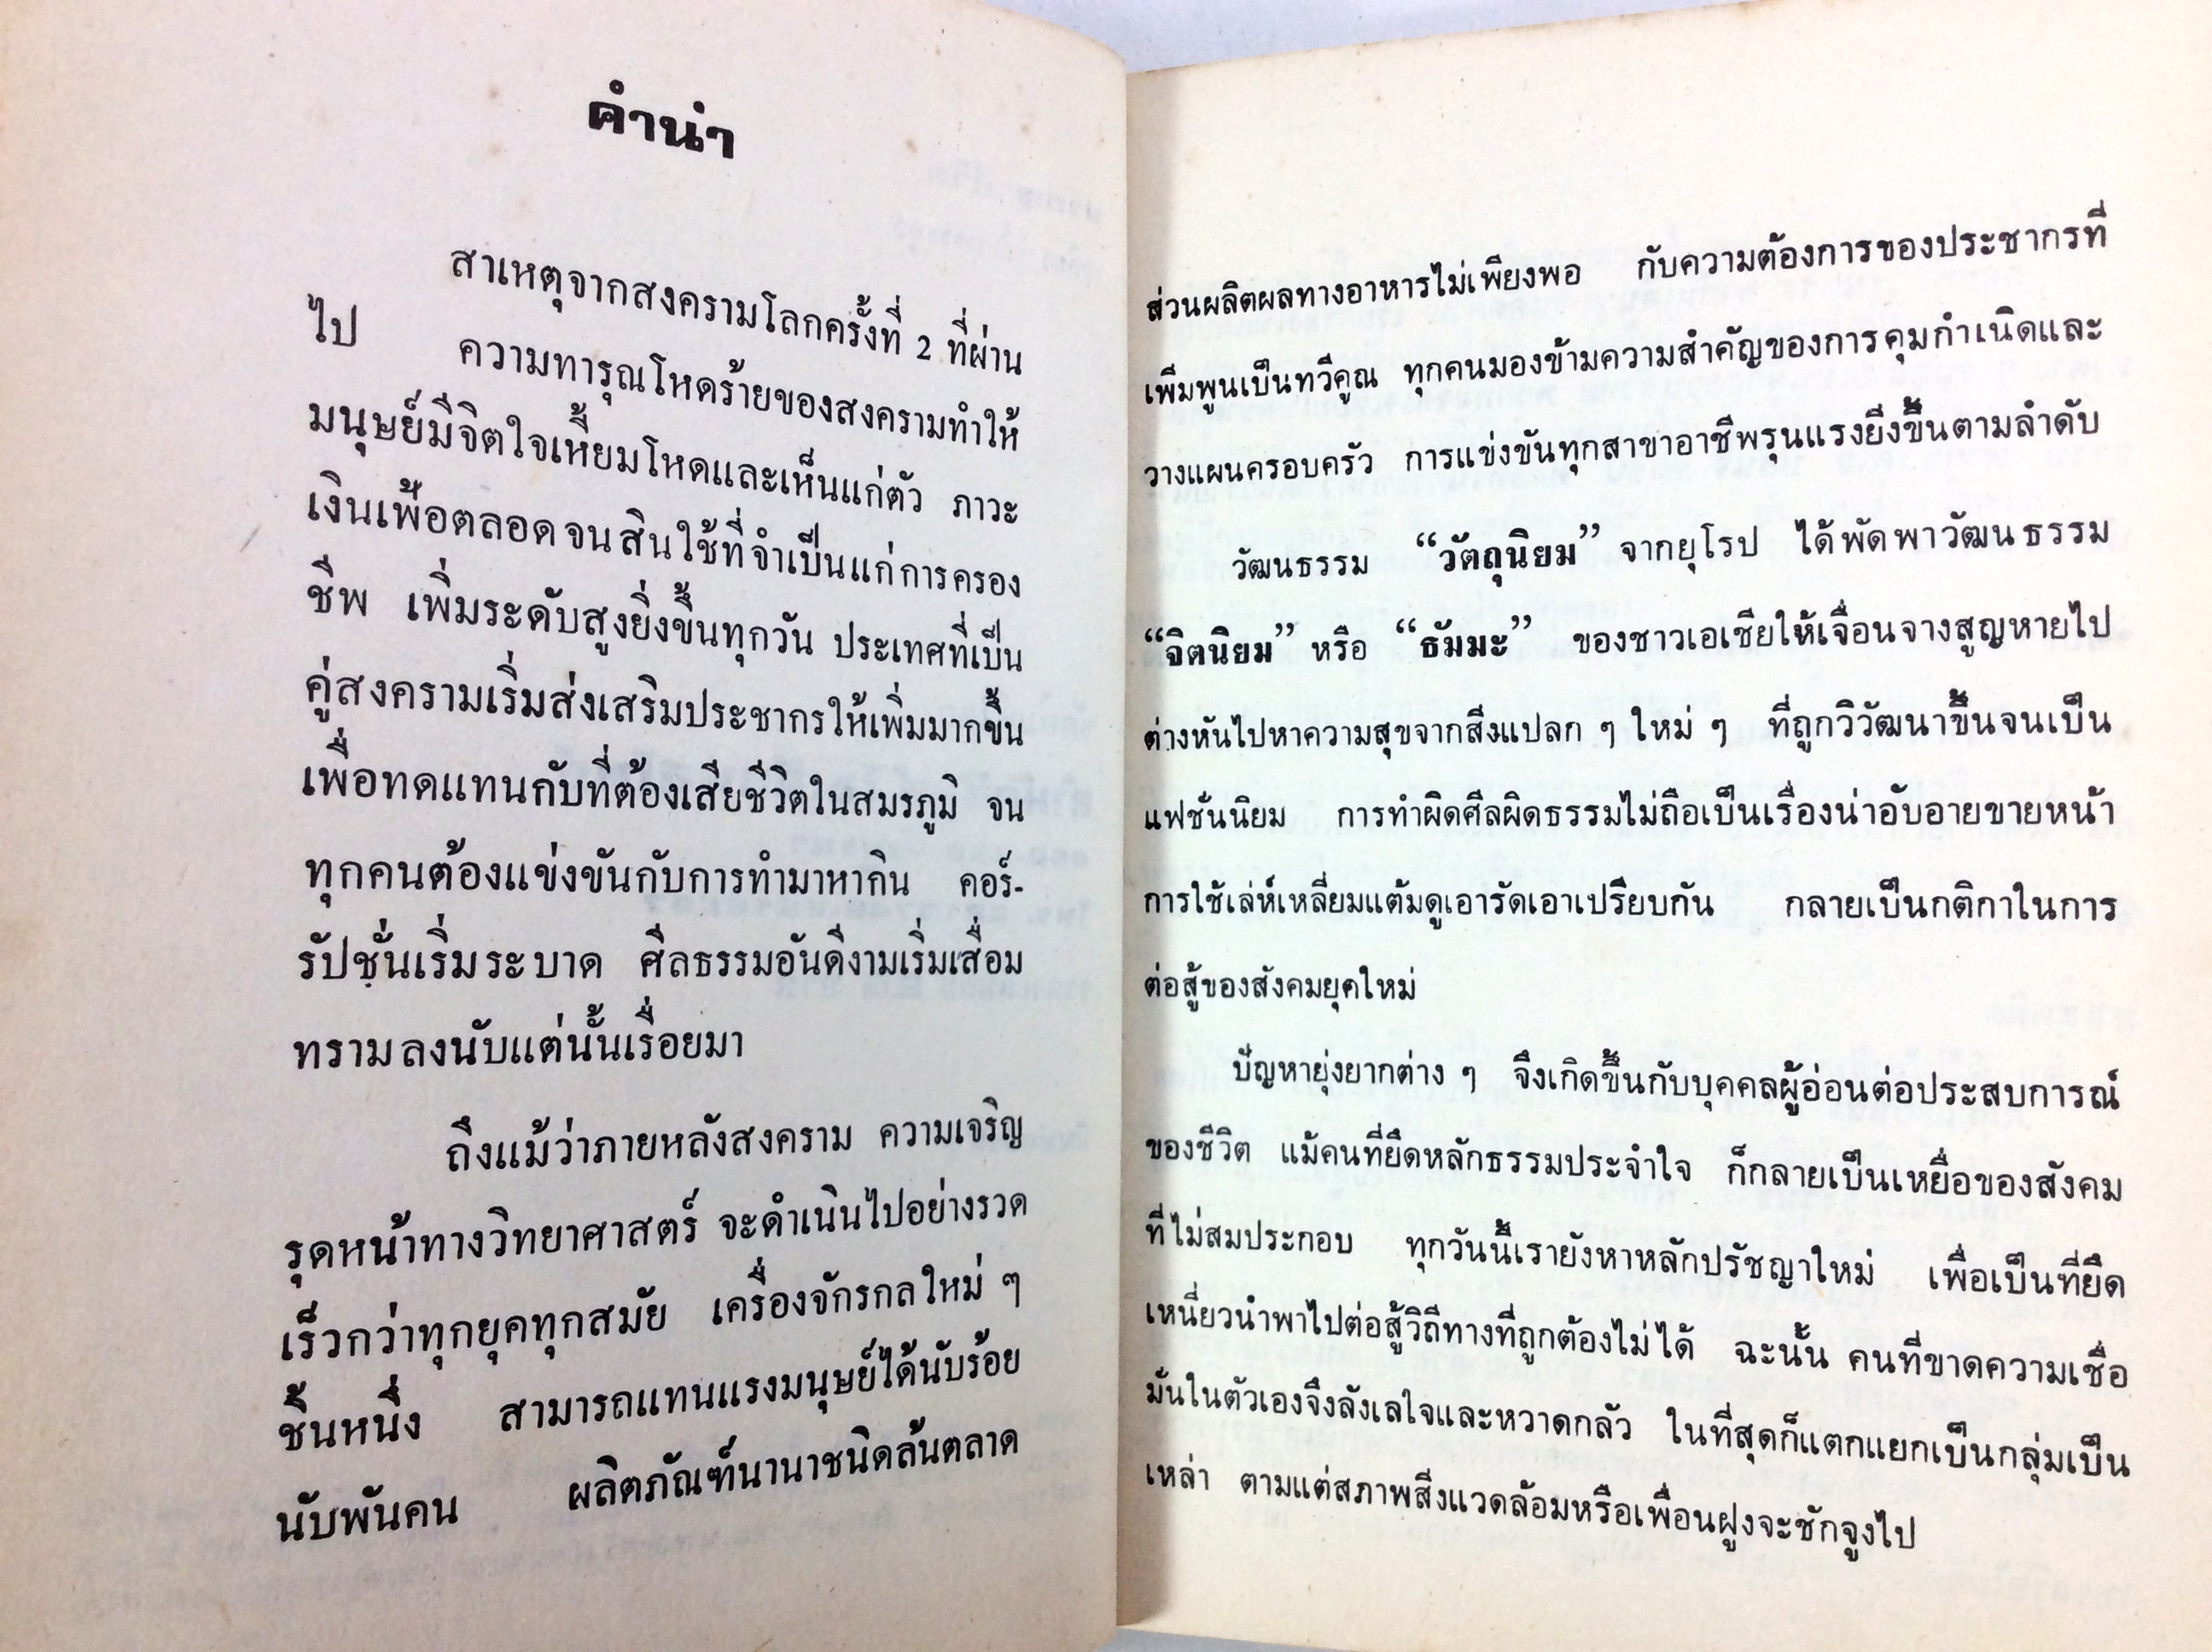 คำนำ
สาเหตุจากสงครามโลกครั้งที่ 2 ที่ผ่าน
ไป ความทารุณโหดร้ายของสงครามทำให้
มนุษย์มีจิตใจเหี้ยมโหดและเห็นแก่ตัว ภาวะ
เงินเฟ้อตลอดจนสินใช้ที่จำเป็นแก่การครอง
ชีพ เพิ่มระดับสูงยิ่งขึ้นทุกวัน ประเทศที่เป็น
คู่สงครามเริ่มส่งเสริมประชากรให้เพิ่มมากขึ้น
เพื่อทดแทนกับที่ต้องเสียชีวิตในสมรภูมิ จน
ทุกคนต้องแข่งขันกับการทำมาหากิน คอร์-
รัปชั่นเริ่มระบาด ศีลธรรมอันดีงามเริ่มเสื่อม
ทรามลงนับแต่นั้นเรื่อยมา
ถึงแม้ว่าภายหลังสงคราม ความเจริญ
รุดหน้าทางวิทยาศาสตร์ จะดำเนินไปอย่างรวด
เร็วกว่าทุกยุคทุกสมัย เครื่องจักรกลใหม่ ๆ
ชิ้นหนึ่ง สามารถแทนแรงมนุษย์ได้นับร้อย
นับพันคน ผลิตภัณฑ์นานาชนิดล้นตลาด
ส่วนผลิตผลทางอาหารไม่เพียงพอ กับความต้องการของประชากรที่
เพิ่มพูนเป็นทวีคูณ ทุกคนมองข้ามความสำคัญของการคุมกำเนิดและ
วางแผนครอบครัว การแข่งขันทุกสาขาอาชีพรุนแรงยิ่งขึ้นตามลำดับ
วัฒนธรรม “วัตถุนิยม” จากยุโรป ได้พัดพาวัฒนธรรม
“จิตนิยม” หรือ “ธัมมะ” ของชาวเอเชียให้เจื่อนจางสูญหายไป
ต่างหันไปหาความสุขจากสิ่งแปลก ๆ ใหม่ ๆ ที่ถูกวิวัฒนาขึ้นจนเป็น
แฟชั่นนิยม การทำผิดศีลผิดธรรมไม่ถือเป็นเรื่องน่าอับอายขายหน้า
การใช้เล่ห์เหลี่ยมแต้มดูเอารัดเอาเปรียบกัน กลายเป็นกติกาในการ
ต่อสู้ของสังคมยุคใหม่
ปัญหายุ่งยากต่าง ๆ จึงเกิดขึ้นกับบุคคลผู้อ่อนต่อประสบการณ์
ของชีวิต แม้คนที่ยึดหลักธรรมประจำใจ ก็กลายเป็นเหยื่อของสังคม
ที่ไม่สมประกอบ ทุกวันนี้เรายังหาหลักปรัชญาใหม่ เพื่อเป็นที่ยึด
เหนี่ยวนำพาไปต่อสู้วิถีทางที่ถูกต้องไม่ได้ ฉะนั้น คนที่ขาดความเชื่อ
มั่นในตัวเองจึงลังเลใจและหวาดกลัว ในที่สุดก็แตกแยกเป็นกลุ่มเป็น
เหล่า ตามแต่สภาพสิ่งแวดล้อมหรือเพื่อนฝูงจะชักจูงไป